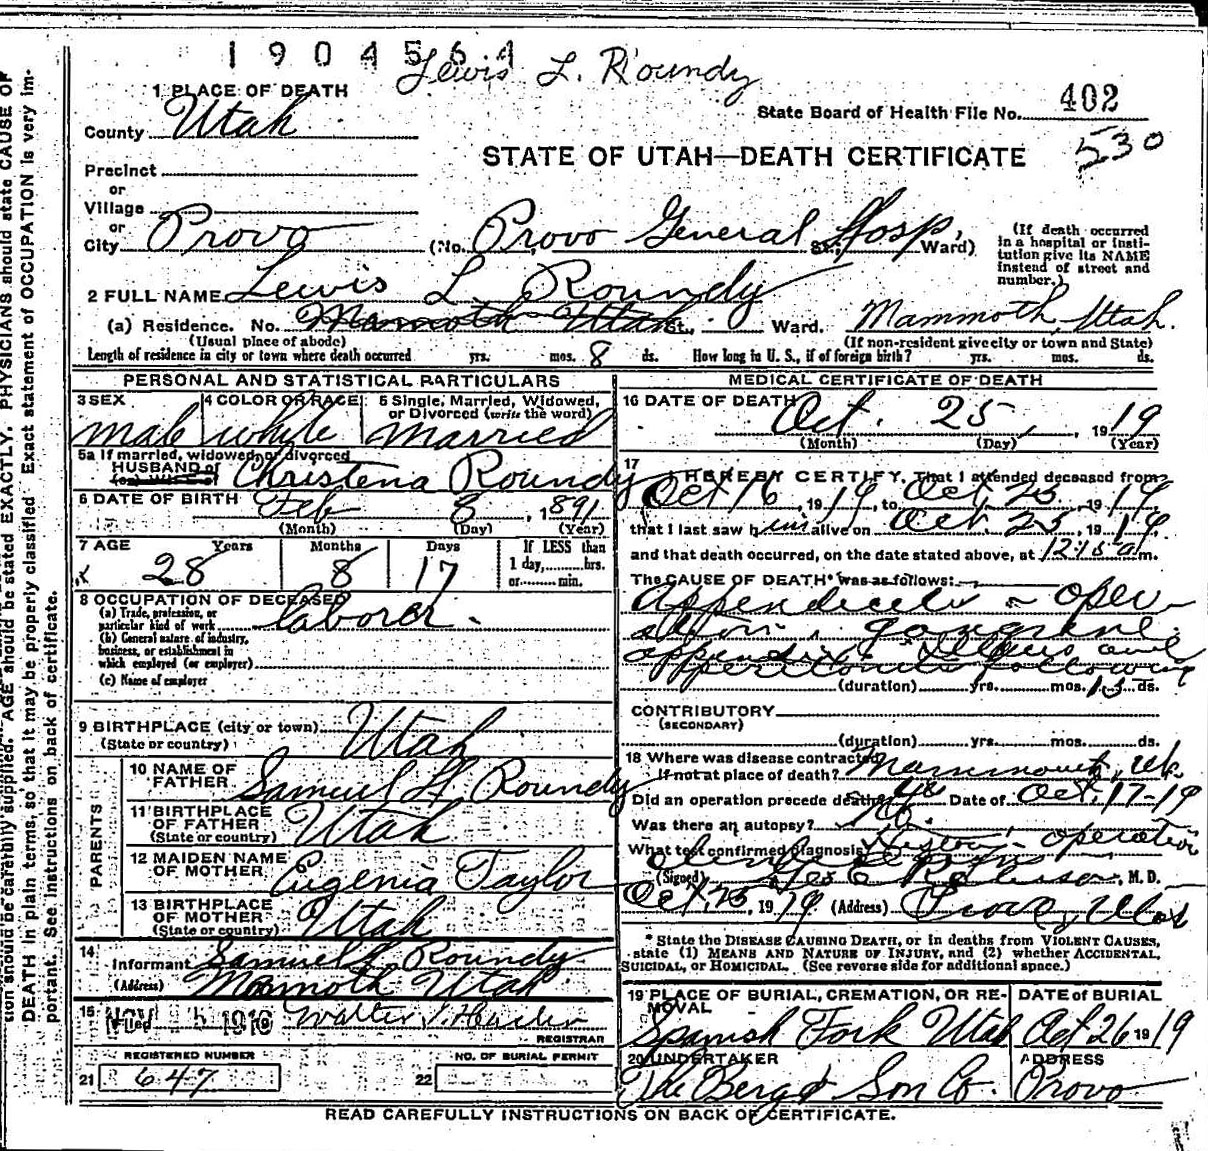 1904564
Lewis L. Roundy
1 PLACE OF DEATH
State Board of Health File No. 402
County Utah
530
STATE OF UTAH—DEATH CERTIFICATE
Precinct
or
Village
or
City Provo (No. Provo General Hosp. St., Ward)
(If death occurred
in a hospital or insti-
tution give its NAME
instead of street and
number.)
2 FULL NAME Lewis L. Roundy
(a) Residence. No. Mammoth Utah St., Ward. Mammoth, Utah.
(Usual place of abode) (If non-resident give city or town and State)
Length of residence in city or town where death occurred yrs. mos. 8 ds. How long in U. S., if of foreign birth? yrs. mos. ds.
PERSONAL AND STATISTICAL PARTICULARS
3 SEX 4 COLOR OR RACE 5 Single, Married, Widowed,
or Divorced (write the word)
male white Married
5a If married, widowed, or divorced
HUSBAND of
(or) WIFE of Christena Roundy
6 DATE OF BIRTH Feb 8, 1891
(Month) (Day) (Year)
7 AGE Years Months Days If LESS than
1 day, hrs.
or min.
28 8 17
8 OCCUPATION OF DECEASED
(a) Trade, profession, or
particular kind of work laborer.
(b) General nature of industry,
business, or establishment in
which employed (or employer)
(c) Name of employer
9 BIRTHPLACE (city or town)
(State or country) Utah
PARENTS
10 NAME OF
FATHER Samuel H Roundy
11 BIRTHPLACE
OF FATHER
(State or country) Utah
12 MAIDEN NAME
OF MOTHER Eugenia Taylor
13 BIRTHPLACE
OF MOTHER
(State or country) Utah
14 Informant Samuel Roundy
(Address) Mammoth Utah
15 Filed NOV 5 1919 Walter
REGISTRAR
REGISTERED NUMBER NO. OF BURIAL PERMIT
21 647 22
MEDICAL CERTIFICATE OF DEATH
16 DATE OF DEATH Oct. 25, 1919
(Month) (Day) (Year)
17 I HEREBY CERTIFY, That I attended deceased from
Oct 16, 1919, to Oct. 25, 1919,
that I last saw him alive on Oct. 25, 1919,
and that death occurred, on the date stated above, at 12:15 a m.
The CAUSE OF DEATH* was as follows:
Appendicitis - oper-
ation, gangrene
appendix and
peritonitis following
(duration) yrs. mos. 13 ds.
CONTRIBUTORY
(SECONDARY)
(duration) yrs. mos. ds.
18 Where was disease contracted
if not at place of death? Mammouth, Ut.
Did an operation precede death? yes Date of Oct. 17-19
Was there an autopsy? No.
What test confirmed diagnosis? History - operation
(Signed) M. D.
Oct. 25, 1919 (Address) Provo, Utah
* State the DISEASE CAUSING DEATH, or in deaths from VIOLENT CAUSES,
state (1) MEANS AND NATURE OF INJURY, and (2) whether ACCIDENTAL,
SUICIDAL, or HOMICIDAL. (See reverse side for additional space.)
19 PLACE OF BURIAL, CREMATION, OR RE-
MOVAL DATE of BURIAL
Spanish Fork Utah Oct 26 1919
20 UNDERTAKER ADDRESS
The Berg & Son Co. Provo
READ CAREFULLY INSTRUCTIONS ON BACK OF CERTIFICATE.
tion should be carefully supplied. AGE should be stated EXACTLY. PHYSICIANS should state CAUSE OF
DEATH in plain terms, so that it may be properly classified. Exact statement of OCCUPATION is very im-
portant. See instructions on back of certificate.